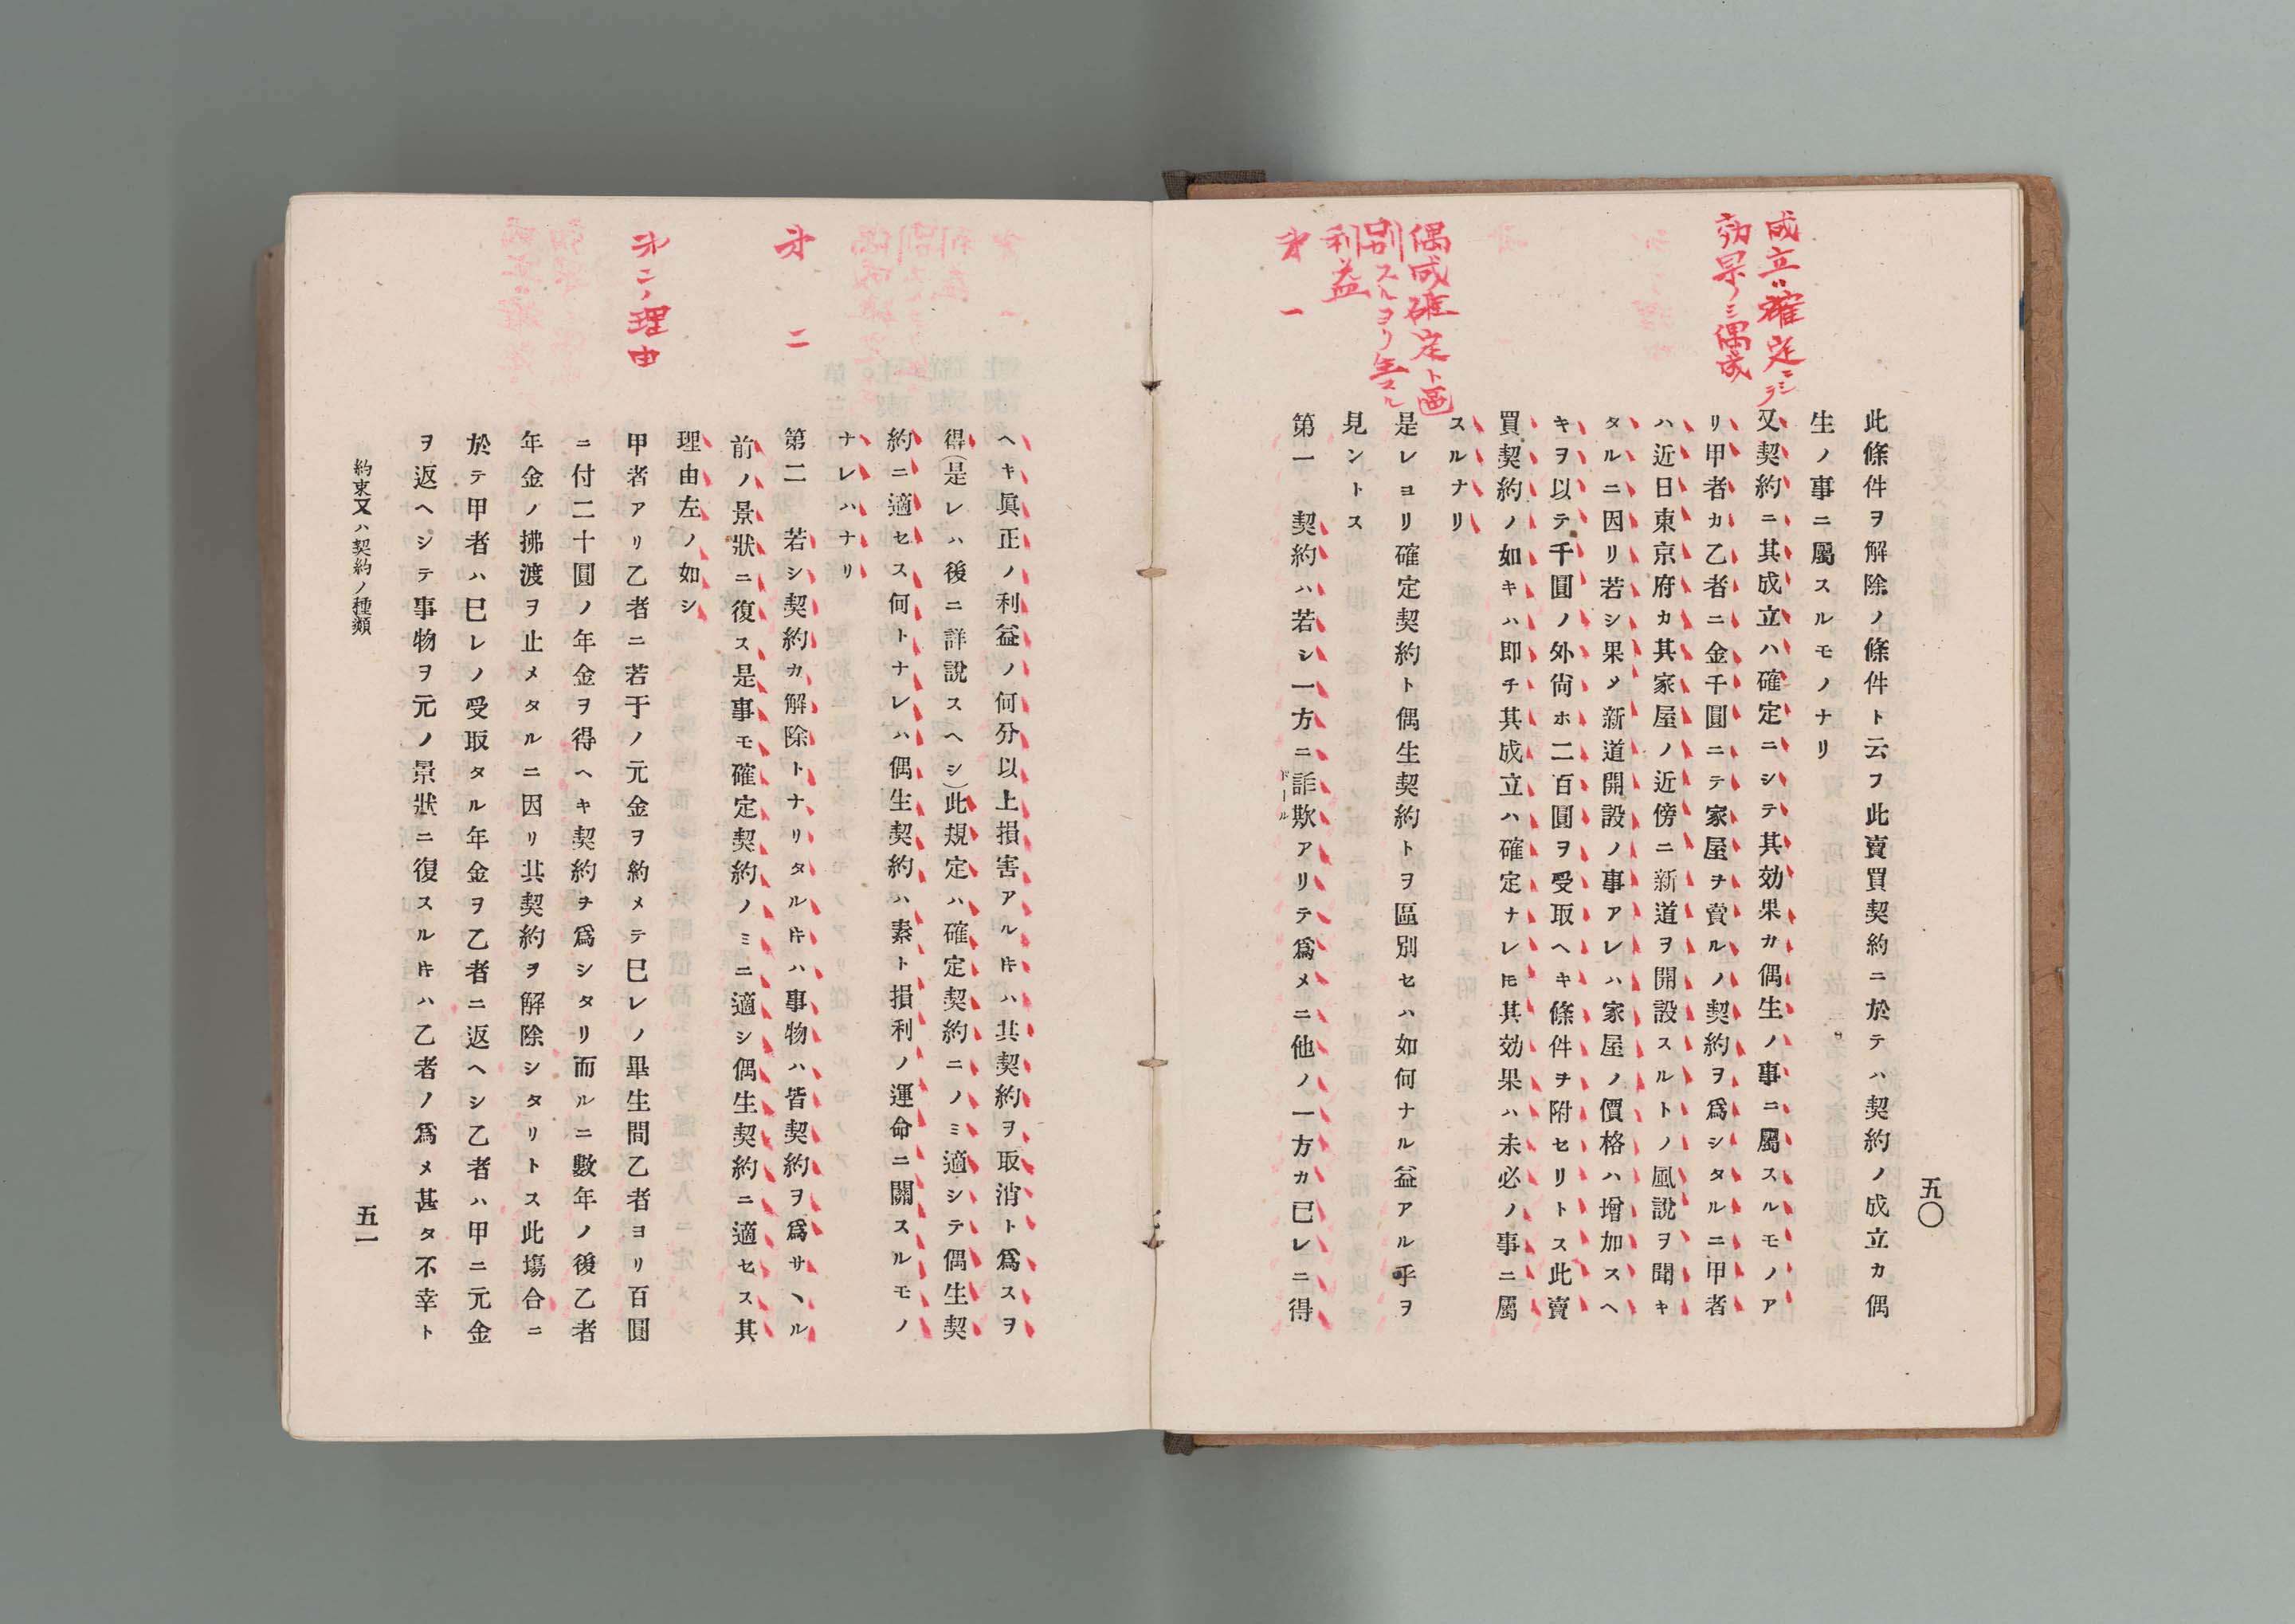 五〇
成立ハ確定ニシテ
効果ノミ偶成
偶成確定ト區
別スルヨリ生スル
利益
第一
此條件ヲ解除ノ條件ト云フ此賣買契約ニ於テハ契約ノ成立カ偶
生ノ事ニ屬スルモノナリ
又契約ニ其成立ハ確定ニシテ其効果カ偶生ノ事ニ屬スルモノア
リ甲者カ乙者ニ金千圓ニテ家屋ヲ賣ルノ契約ヲ爲シタルニ甲者
ハ近日東京府カ其家屋ノ近傍ニ新道ヲ開設スルトノ風說ヲ聞キ
タルニ因リ若シ果メ新道開設ノ事アレハ家屋ノ價格ハ增加スヘ
キヲ以テ千圓ノ外尙ホ二百圓ヲ受取ヘキ條件ヲ附セリトス此賣
買契約ノ如キハ即チ其成立ハ確定ナレ𪜈其効果ハ未必ノ事ニ屬
スルナリ
是レヨリ確定契約ト偶生契約トヲ區別セハ如何ナル益アル乎ヲ
見ントス
第一 契約ハ若シ一方ニ詐欺アリテ爲メニ他ノ一方カ已レニ得
ドール
第二
第二ノ理由
ヘキ眞正ノ利益ノ何分以上損害アル𪜈ハ其契約ヲ取消ト爲スヲ
得(是レハ後ニ詳說スヘシ)此規定ハ確定契約ニノミ適シテ偶生契
約ニ適セス何トナレハ偶生契約ハ素ト損利ノ運命ニ關スルモノ
ナレハナリ
第二 若シ契約カ解除トナリタル𪜈ハ事物ハ皆契約ヲ爲サヽル
前ノ景狀ニ復ス是事モ確定契約ノミニ適シ偶生契約ニ適セス其
理由左ノ如シ
甲者アリ乙者ニ若于ノ元金ヲ約メテ已レノ畢生間乙者ヨリ百圓
ニ付二十圓ノ年金ヲ得ヘキ契約ヲ爲シタリ而ルニ數年ノ後乙者
年金ノ拂渡ヲ止メタルニ因リ其契約ヲ解除シタリトス此塲合ニ
於テ甲者ハ已レノ受取タル年金ヲ乙者ニ返ヘシ乙者ハ甲ニ元金
ヲ返ヘシテ事物ヲ元ノ景狀ニ復スル𪜈ハ乙者ノ爲メ甚タ不幸ト
約束又ハ契約ノ種類
五一